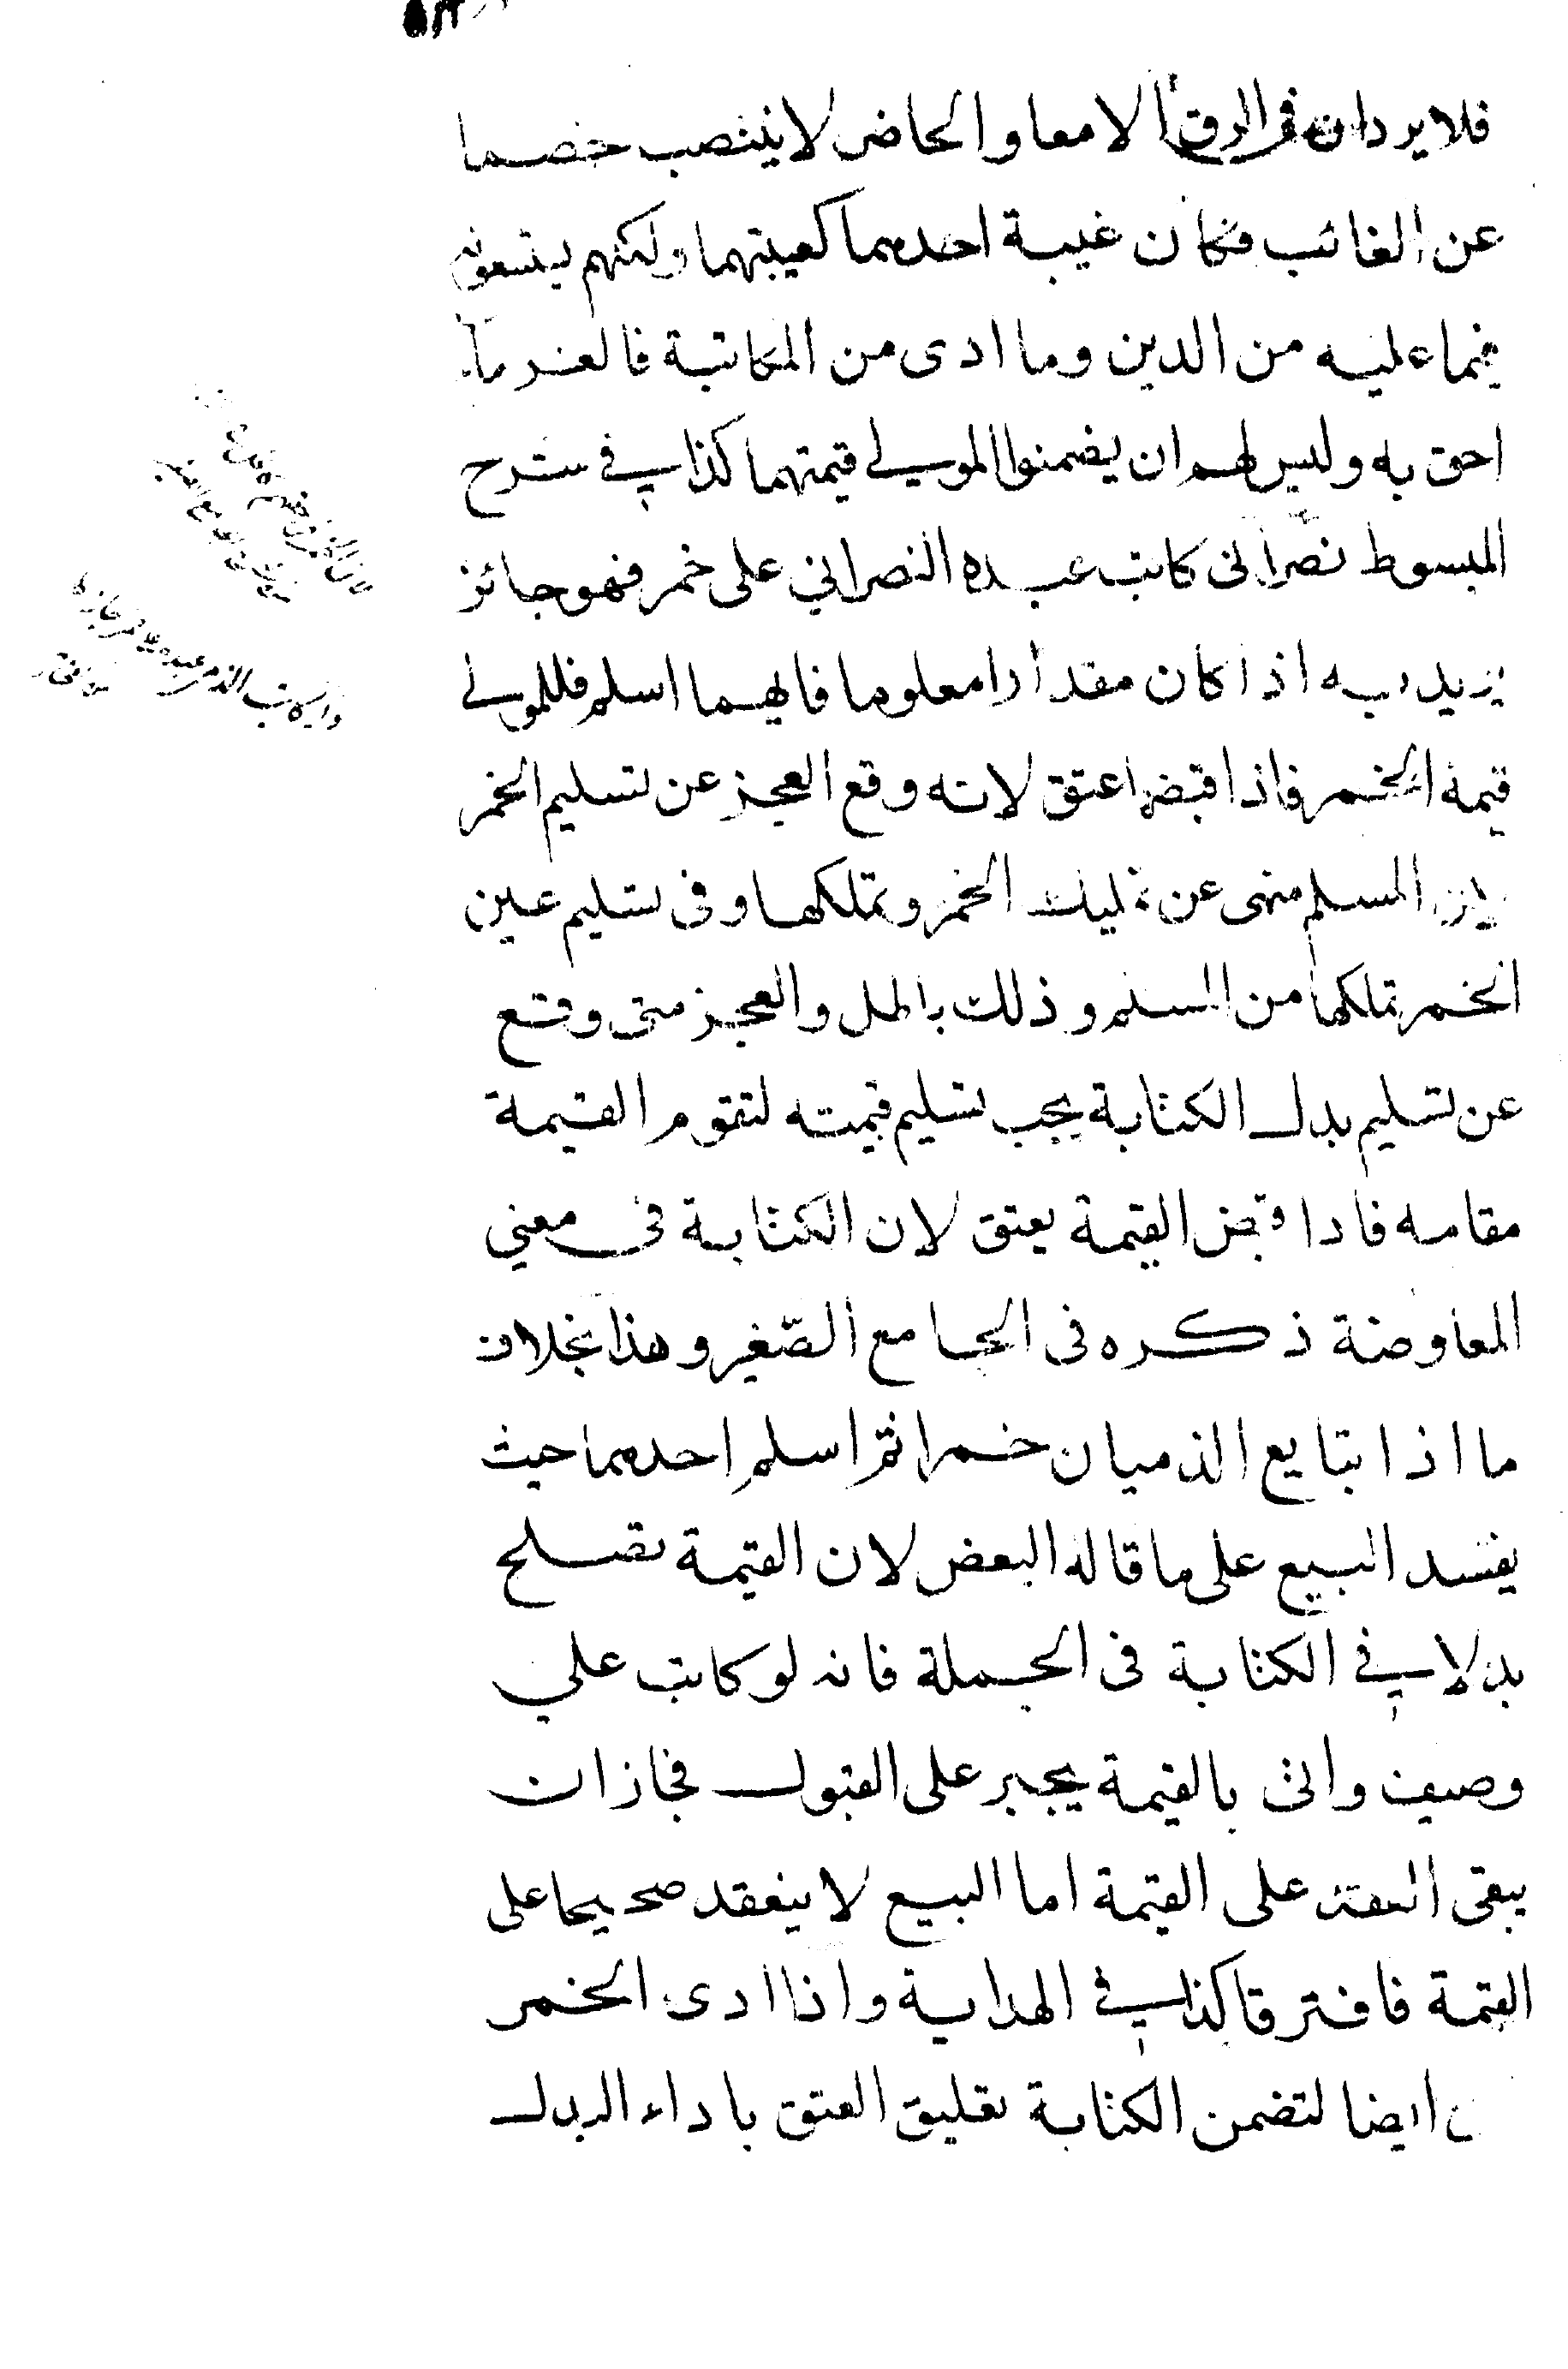 فلا يردان في الرق الا معا والحاضر لا ينتصب خصما
عن الغائب فكان غيبة احدهما كغيبتهما ولكنهم يستسعونه
فيما عليه من الدين وما ادى من المكاتبة فالغرماء
احق به وليس لهم ان يضمنوا المولى قيمتهما كذا في شرح
المبسوط نصراني كاتب عبده النصراني على خمر فهو جائز
يريد به اذا كان مقدارا معلوما فايهما اسلم فللمولى
قيمة الخمر فاذا قبضها عتق لانه وقع العجز عن تسليم الخمر
المسلم منهى عن تمليك الخمر وتملكها وفى تسليم عين
الخمر تملكها من المسلم وذلك باطل والعجز متى وقع
عن تسليم بدل الكتابة يجب تسليم قيمته لتقوم القيمة
مقامه فادا قبض القيمة يعتق لان الكتابة في معني
المعاوضة ذكره فى الجامع الصّغير وهذا بخلاف
ما اذا تبايع الذميان خمرا ثم اسلم احدهما حيث
يفسد البيع على ما قاله البعض لان القيمة تصلح
بدلا في الكتابة فى الجملة فانه لو كاتب علي
وصيف واتى بالقيمة يجبر على القبول فجاز ان
يبقى العقد على القيمة اما البيع لا ينعقد صحيحا على
القيمة فافترقا كذا في الهداية واذا ادى الخمر
ايضا لتضمن الكتابة تعليق العتق باداء البدل